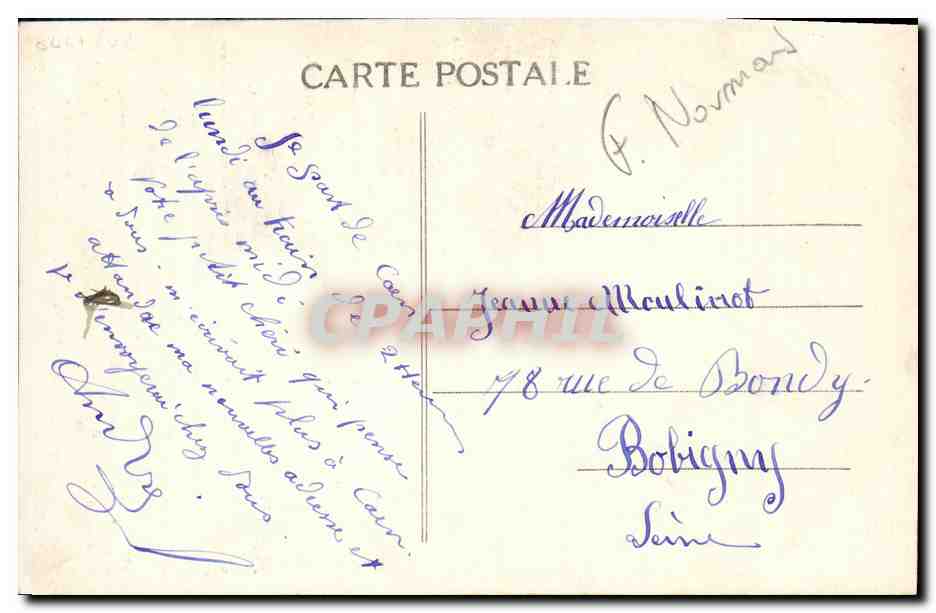 CARTE POSTALE
F. Normand
Je part de Caen
lundi au train de 2 Heures
de l'après midi.
Votre petit chéri qui pense
a vous. m'écrivait plus à Caen.
attendre ma nouvelles adresse et
chez vous.
André
Mademoiselle
Jeanne Moulinot
78 rue de Bondy.
Bobigny
Seine
CPAPHIL